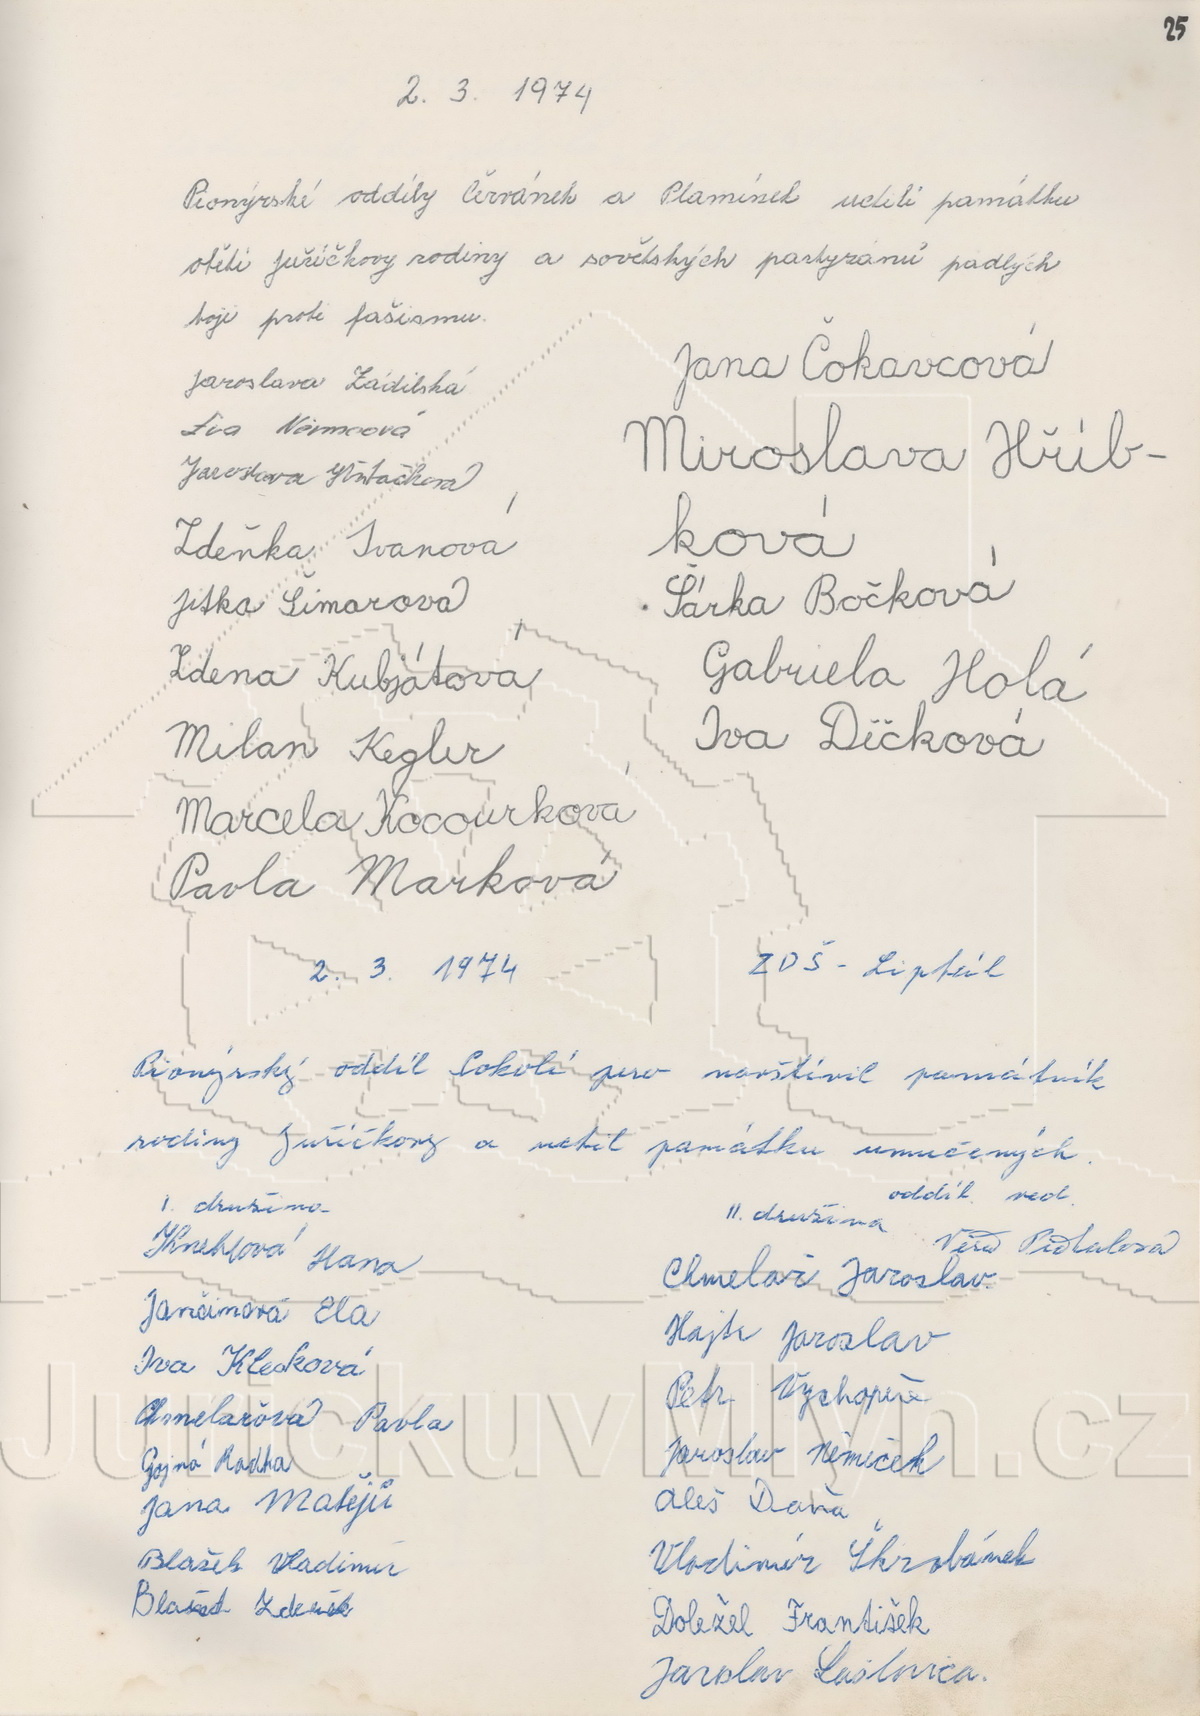 25
2. 3. 1974
Pionýrské oddíly Červánek a Plamínek uctili památku
obětí Juříčkovy rodiny a sovětských partyzánů padlých
boji proti fašismu.
Jaroslava Zádilská
Eva Němcová
Jaroslava
Zdeňka Ivanová
Jitka Šimarová
Zdena Kubjátová
Milan Kegler
Marcela Kocourková
Pavla Marková
Jana Čokavcová
Miroslava Hříb-
ková
Šárka Bočková
Gabriela Holá
Iva Díčková
2. 3. 1974 ZDŠ - Liptál
Pionýrský oddíl Sokolí pero navštívil památník
rodiny Juříčkovy a uctil památku umučených.
oddíl. ved.
Věra
I. družina
Hana
Jančimová Ela
Iva Klesková
Chmelařová Pavla
Gojná Radka
Jana Matějů
Blažek Vladimír
Blažek Zdeněk
II. družina
Chmelař Jaroslav
Jaroslav
Petr Vychopeň
Jaroslav Němeček
Aleš Daňa
Vladimír Škrobánek
Doležel František
Jaroslav Lašťovica.
JurickuvMlyn.cz